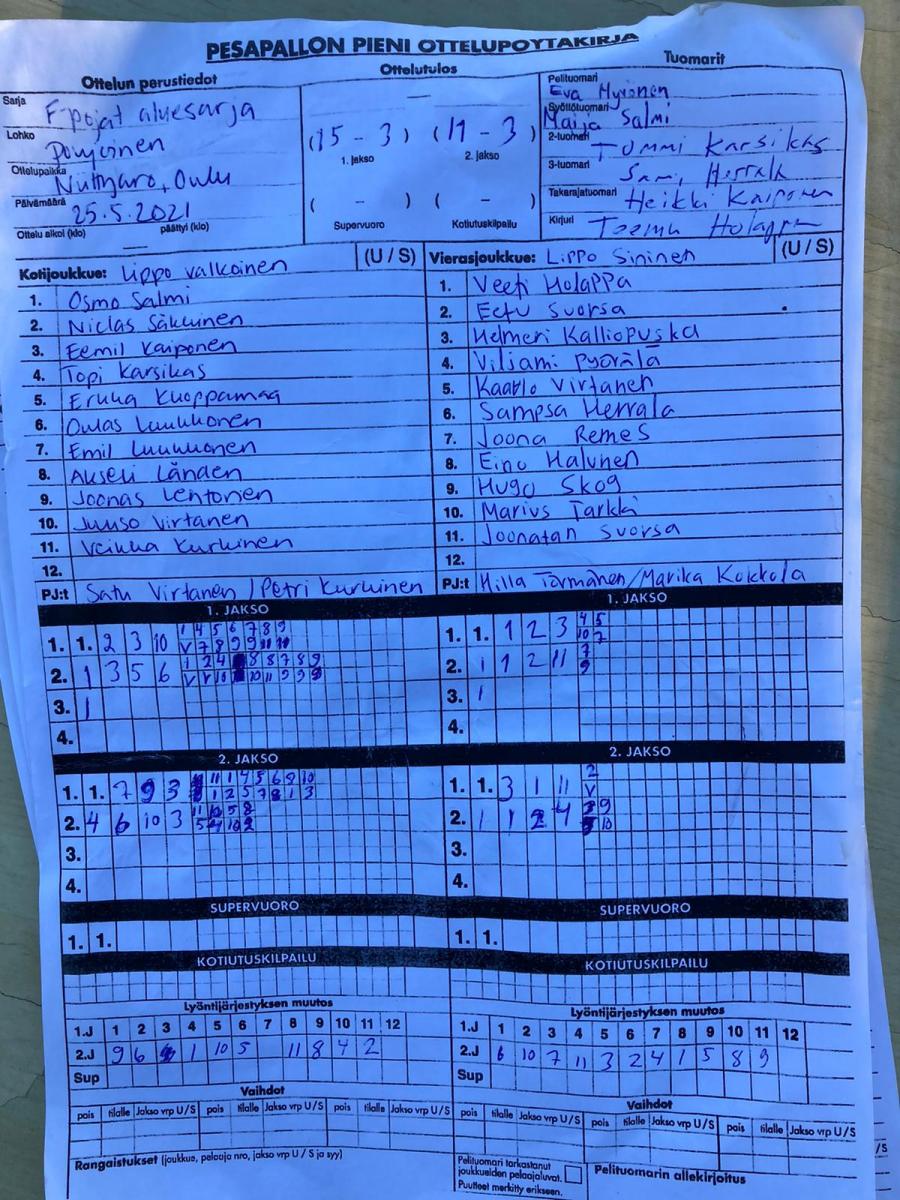 PESÄPALLON PIENI OTTELUPÖYTÄKIRJA
Ottelun perustiedot
Ottelutulos
Tuomarit
Sarja F-pojat aluesarja
Lohko Pohjoinen
Ottelupaikka Oulu
Päivämäärä 25.5.2021
Ottelu alkoi (klo) — päättyi (klo)
—
(15 - 3) (11 - 3)
1. jakso 2. jakso
( - ) ( - )
Supervuoro Kotiutuskilpailu
Pelituomari Eva Myronen
Syöttötuomari Maija Salmi
2-tuomari Tommi Karsikas
3-tuomari Sami Herrala
Takarajatuomari Heikki Kaiponen
Kirjuri Teemu Holappa
Kotijoukkue: Lippo Valkoinen (U / S)
1. Osmo Salmi
2. Niclas Säkkinen
3. Eemil Kaiponen
4. Topi Karsikas
5. Erkka Kuoppamaa
6. Oulas Luukkonen
7. Emil Luukkonen
8. Akseli Länden
9. Joonas Lehtonen
10. Juuso Virtanen
11. Veikka Kurkinen
12.
PJ:t Satu Virtanen / Petri Kurkinen
Vierasjoukkue: Lippo Sininen (U / S)
1. Veeti Holappa
2. Eetu Suorsa
3. Helmeri Kalliopuska
4. Viljami Pyörälä
5. Kaarlo Virtanen
6. Sampsa Herrala
7. Joona Remes
8. Eino Halunen
9. Hugo Skog
10. Marius Tarkka
11. Joonatan Suorsa
12.
PJ:t Hilla Törmänen/Marika Kokkola
1. JAKSO
1. 1. 2 3 10
2. 1 3 5 6
3. 1
4.
1. JAKSO
1. 1. 1 2 3
2. 1 1 2 11
3. 1
4.
2. JAKSO
1. 1. 7 9 3
2. 4 6 10 3
3.
4.
2. JAKSO
1. 1. 3 1 11
2. 1 1 2 4
3.
4.
SUPERVUORO
1. 1.
SUPERVUORO
1. 1.
KOTIUTUSKILPAILU
KOTIUTUSKILPAILU
Lyöntijärjestyksen muutos
1.J 1 2 3 4 5 6 7 8 9 10 11 12
2.J 9 6 1 10 5 11 8 4 2
Sup
Lyöntijärjestyksen muutos
1.J 1 2 3 4 5 6 7 8 9 10 11 12
2.J 6 10 7 11 3 2 4 1 5 8 9
Sup
Vaihdot
pois tilalle Jakso vrp U/S pois tilalle Jakso vrp U/S pois tilalle Jakso vrp U/S
Vaihdot
pois tilalle Jakso vrp U/S pois tilalle Jakso vrp U/S pois tilalle Jakso vrp U/S
Rangaistukset (joukkue, pelaaja nro, jakso vrp U / S ja syy)
Pelituomari tarkastanut
joukkueiden pelaajaluvat.
Puutteet merkitty erikseen.
Pelituomarin allekirjoitus